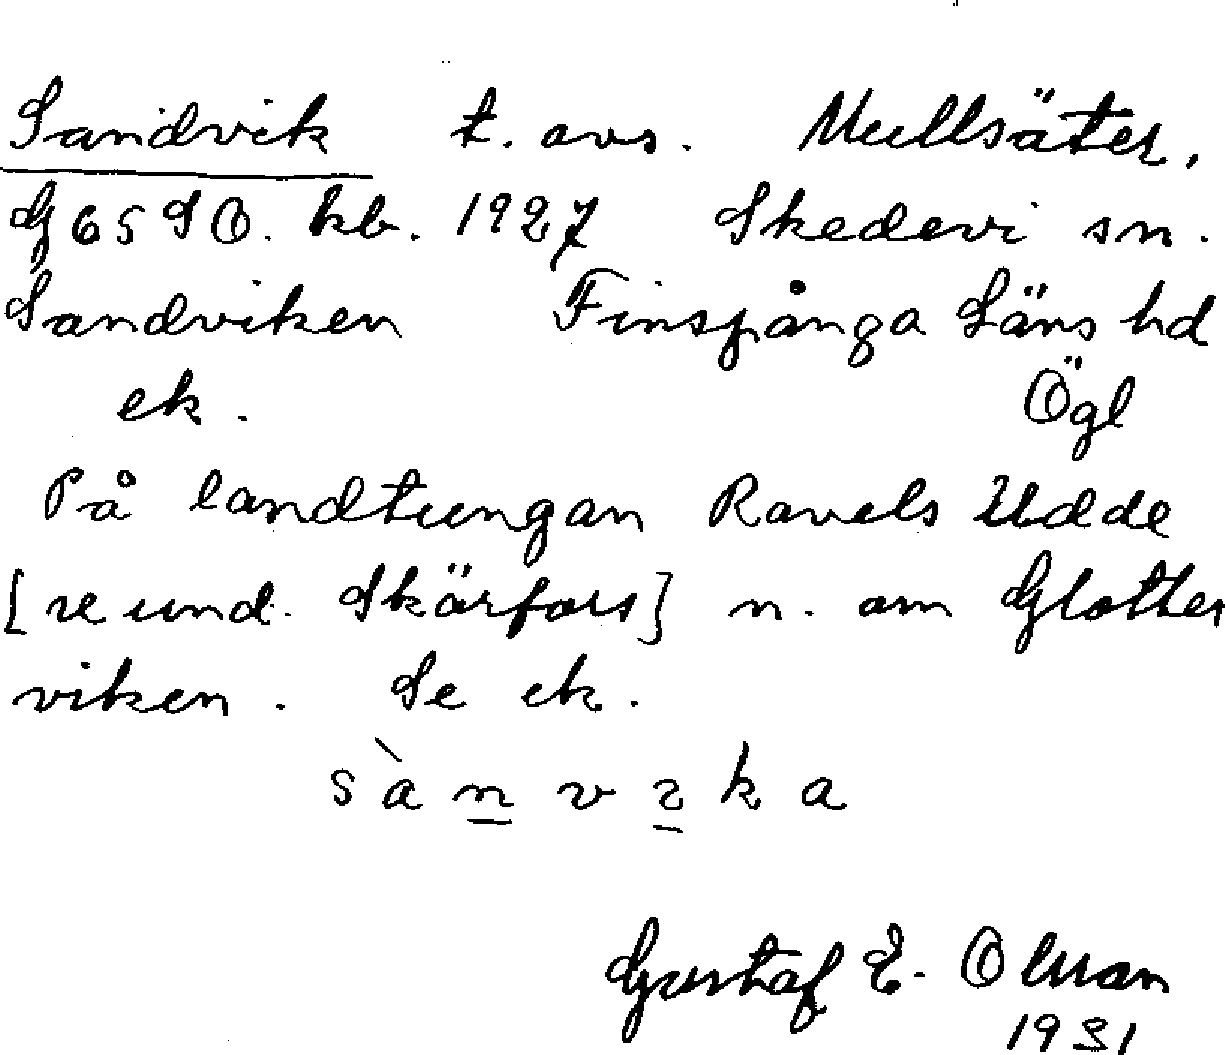 Sandvik t. avs. Mullsäter,
G 65 SO. kb. 1927 Skedevi sn.
Sandviken Finspånga Läns hd
ek. Ögl
På landtungan Ravels Udde
[se und. Skärfors] n. om Glotter
viken. Se ek.
sànvɩka
Gustaf E. Olsson
1931